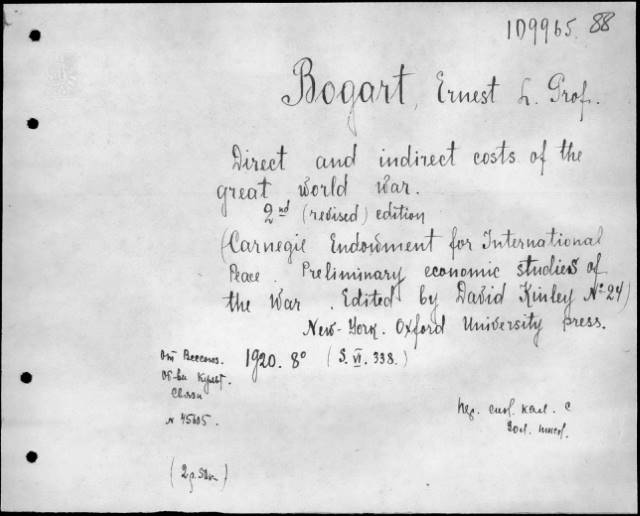 1D9965. 88
Bogart, Ernest L. Prof.
Direct and indirect costs of the
great world war.
2nd (revised) edition
(Carnegie Endowment for International
Peace. Preliminary economic studies of
the War. Edited by David Kinley №24)
New-York. Oxford University press.
1920. 8° (S. VI. 338.)
От Всесоюз.
Об-ва Культ.
Связи
N
(2 р.